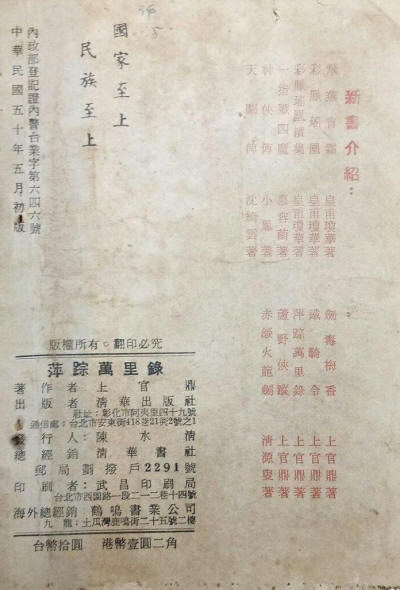 新書介紹：
飛燕青霜 皇甫瓊華著
彩鳳瑤鳳 皇甫瓊華著
彩鳳瑤鳳續集 皇甫瓊華著
一指殲四魔 慕容蘭著
神俠傳 小鳳著
天闕碑 沈綺雲著
劍毒梅香 上官鼎著
鐵騎令 上官鼎著
萍踪萬里錄 上官鼎著
蘆野俠蹤 上官鼎著
赤燄火龍劍 清源叟著
國家至上
民族至上
內政部登記證內警台業字第六四六號
中華民國五十年五月初版
版權所有。翻印必究
萍踪萬里錄
著作者 上官鼎
出版者 清華出版社
社址：彰化市阿夷里四十九號
通信處：台北市安東街418巷21衖2號之1
發行人 陳水清
總經銷 清華書社
郵局劃撥戶2291號
印刷者 武昌印刷局
台北市西園路一段二一二巷十四號
海外總經銷 鶴鳴書業公司
九龍：土瓜灣鹿鳴街二十五號二樓
台幣拾圓 港幣壹圓二角